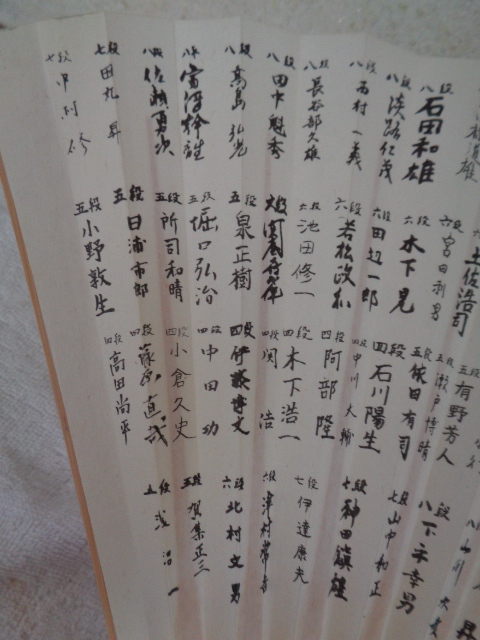 八段 石田和雄
八段 淡路仁茂
八段 西村一義
八段 長谷部久雄
八段 田中魁秀
八段 高島弘光
八段 佐藤勇次
七段 田丸昇
七段 中村修
土佐浩司
六段 宮田利男
六段 木下晃
六段 田辺一郎
六段 若松政和
六段 池田修一
五段 泉正樹
五段 堀口弘治
五段 所司和晴
五段 日浦市郎
五段 小野敦生
五段 有野芳人
五段 瀬戸博晴
五段 依田有司
四段 石川陽生
四段 中川大輔
四段 阿部隆
四段 木下浩一
四段 関浩
四段 伊藤博文
四段 中田功
四段 小倉久史
四段 藤原直哉
四段 高田尚平
八段 下平幸男
七段 山中和正
七段 神田鎮雄
七段 伊達康夫
六段 津村常吉
六段 北村文男
五段 賀集正三
五段 浅沼一